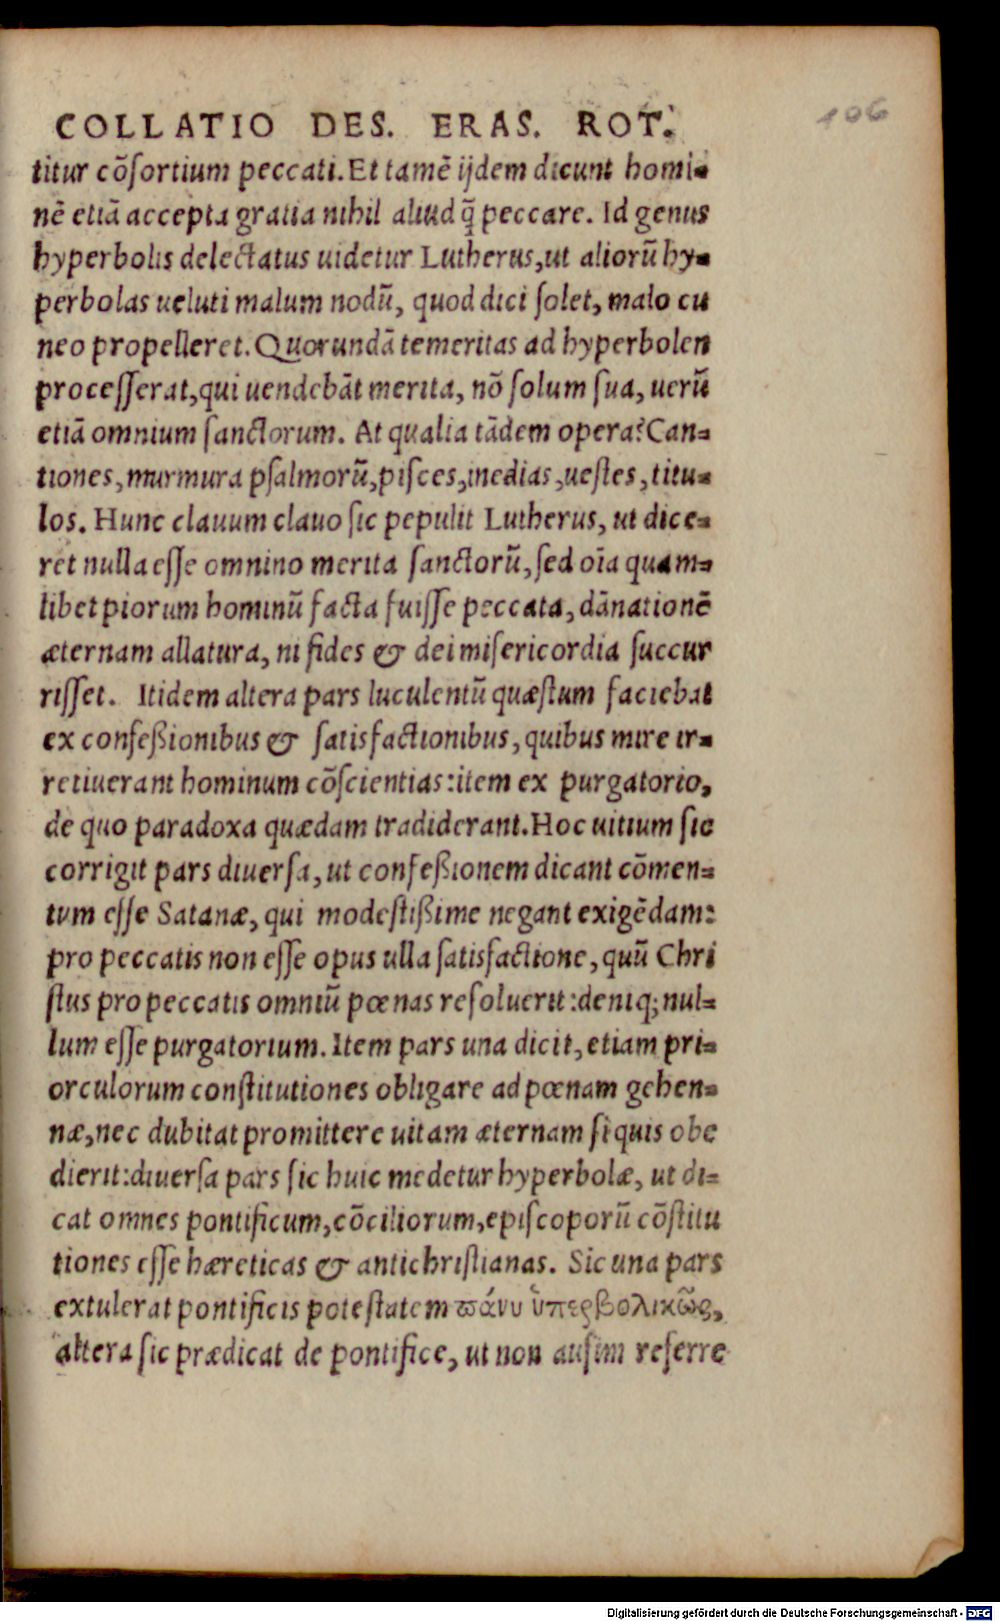 COLLATIO DES. ERAS. ROT.
106
titur cõsortium peccati. Et tamẽ ijdem dicunt homi-
nẽ etiã accepta gratia nihil aliud q̃ peccare. Id genus
hyperbolis delectatus uidetur Lutherus, ut aliorũ hy-
perbolas ueluti malum nodũ, quod dici solet, malo cu
neo propelleret. Quorundã temeritas ad hyperbolen
processerat, qui uendebãt merita, nõ solum sua, uerũ
etiã omnium sanctorum. At qualia tãdem opera? Can-
tiones, murmura psalmorũ, pisces, inedias, uestes, titu-
los. Hunc clauum clauo sic pepulit Lutherus, ut dice-
ret nulla esse omnino merita sanctorũ, sed oĩa quam-
libet piorum hominũ facta fuisse peccata, dãnationẽ
æternam allatura, ni fides & dei misericordia succur
risset. Itidem altera pars luculentũ quæstum faciebat
ex confeßionibus & satisfactionibus, quibus mire ir-
retiuerant hominum cõscientias: item ex purgatorio,
de quo paradoxa quædam tradiderant. Hoc uitium sic
corrigit pars diuersa, ut confeßionem dicant cõmen-
tum esse Satanæ, qui modestißime negant exigẽdam:
pro peccatis non esse opus ulla satisfactione, quũ Chri
stus pro peccatis omniũ pœnas resoluerit: deniq; nul-
lum esse purgatorium. Item pars una dicit, etiam pri-
orculorum constitutiones obligare ad pœnam gehen-
næ, nec dubitat promittere uitam æternam si quis obe
dierit: diuersa pars sic huic medetur hyperbolæ, ut di-
cat omnes pontificum, cõciliorum, episcoporũ cõstitu
tiones esse hæreticas & antichristianas. Sic una pars
extulerat pontificis potestatem πάνυ ὑπερβολικῶς,
altera sic prædicat de pontifice, ut non ausim referre
Digitalisierung gefördert durch die Deutsche Forschungsgemeinschaft - DFG